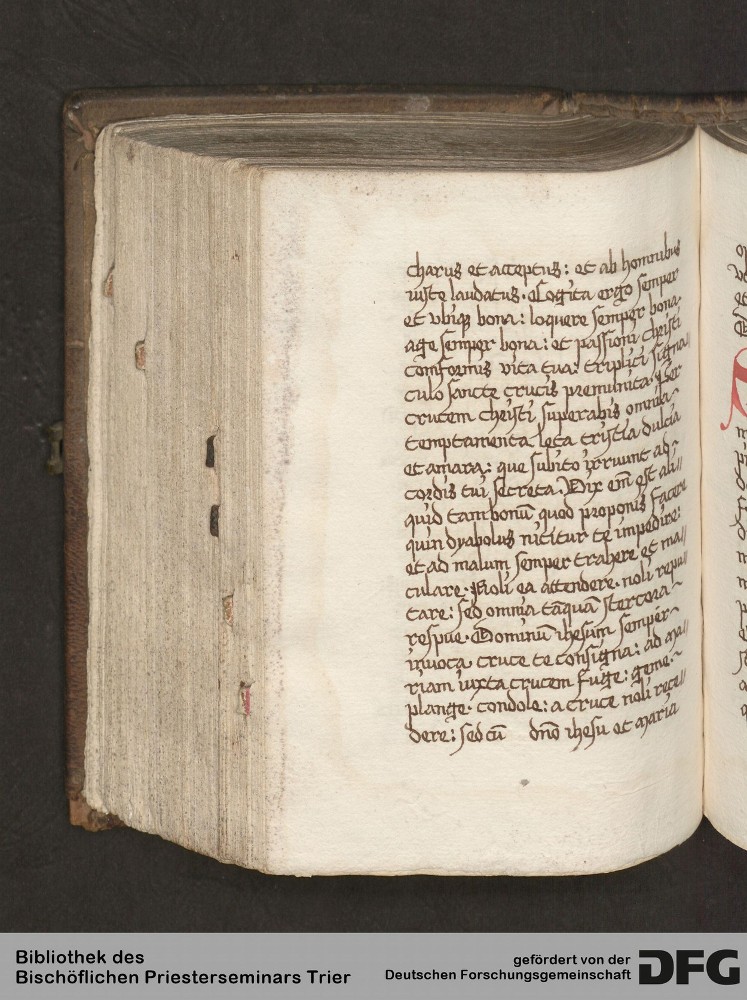 charus et acceptus: et ab hominibus
iuste laudatus. Cogita ergo semper
et vbiqȝ bona: loquere semper bona,
age semper bona: et passioni christi
comformis vita tua: triplici signa//
culo sancte crucis premunita. Per
crucem christi superabis omnia
temptamenta leta tristia dulcia
et amara: que subito irruunt ad
cordis tui secreta. Vix em̄ est ali//
quid tam bonū quod proponis facere
quin dyabolus nititur te impedire:
et ad malum semper trahere et ma//
culare. Noli ea attendere. noli repu//
tare: sed omnia tāquā stercora
respue. Dominū ihesum semper
inuoca. cruce te consigna: ad ma//
riam iuxta crucem fuge: geme.
plange. condole: a cruce noli rece//
dere: sed cū dn̄o ihesu et maria
Bibliothek des
Bischöflichen Priesterseminars Trier
gefördert von der
Deutschen Forschungsgemeinschaft
DFG